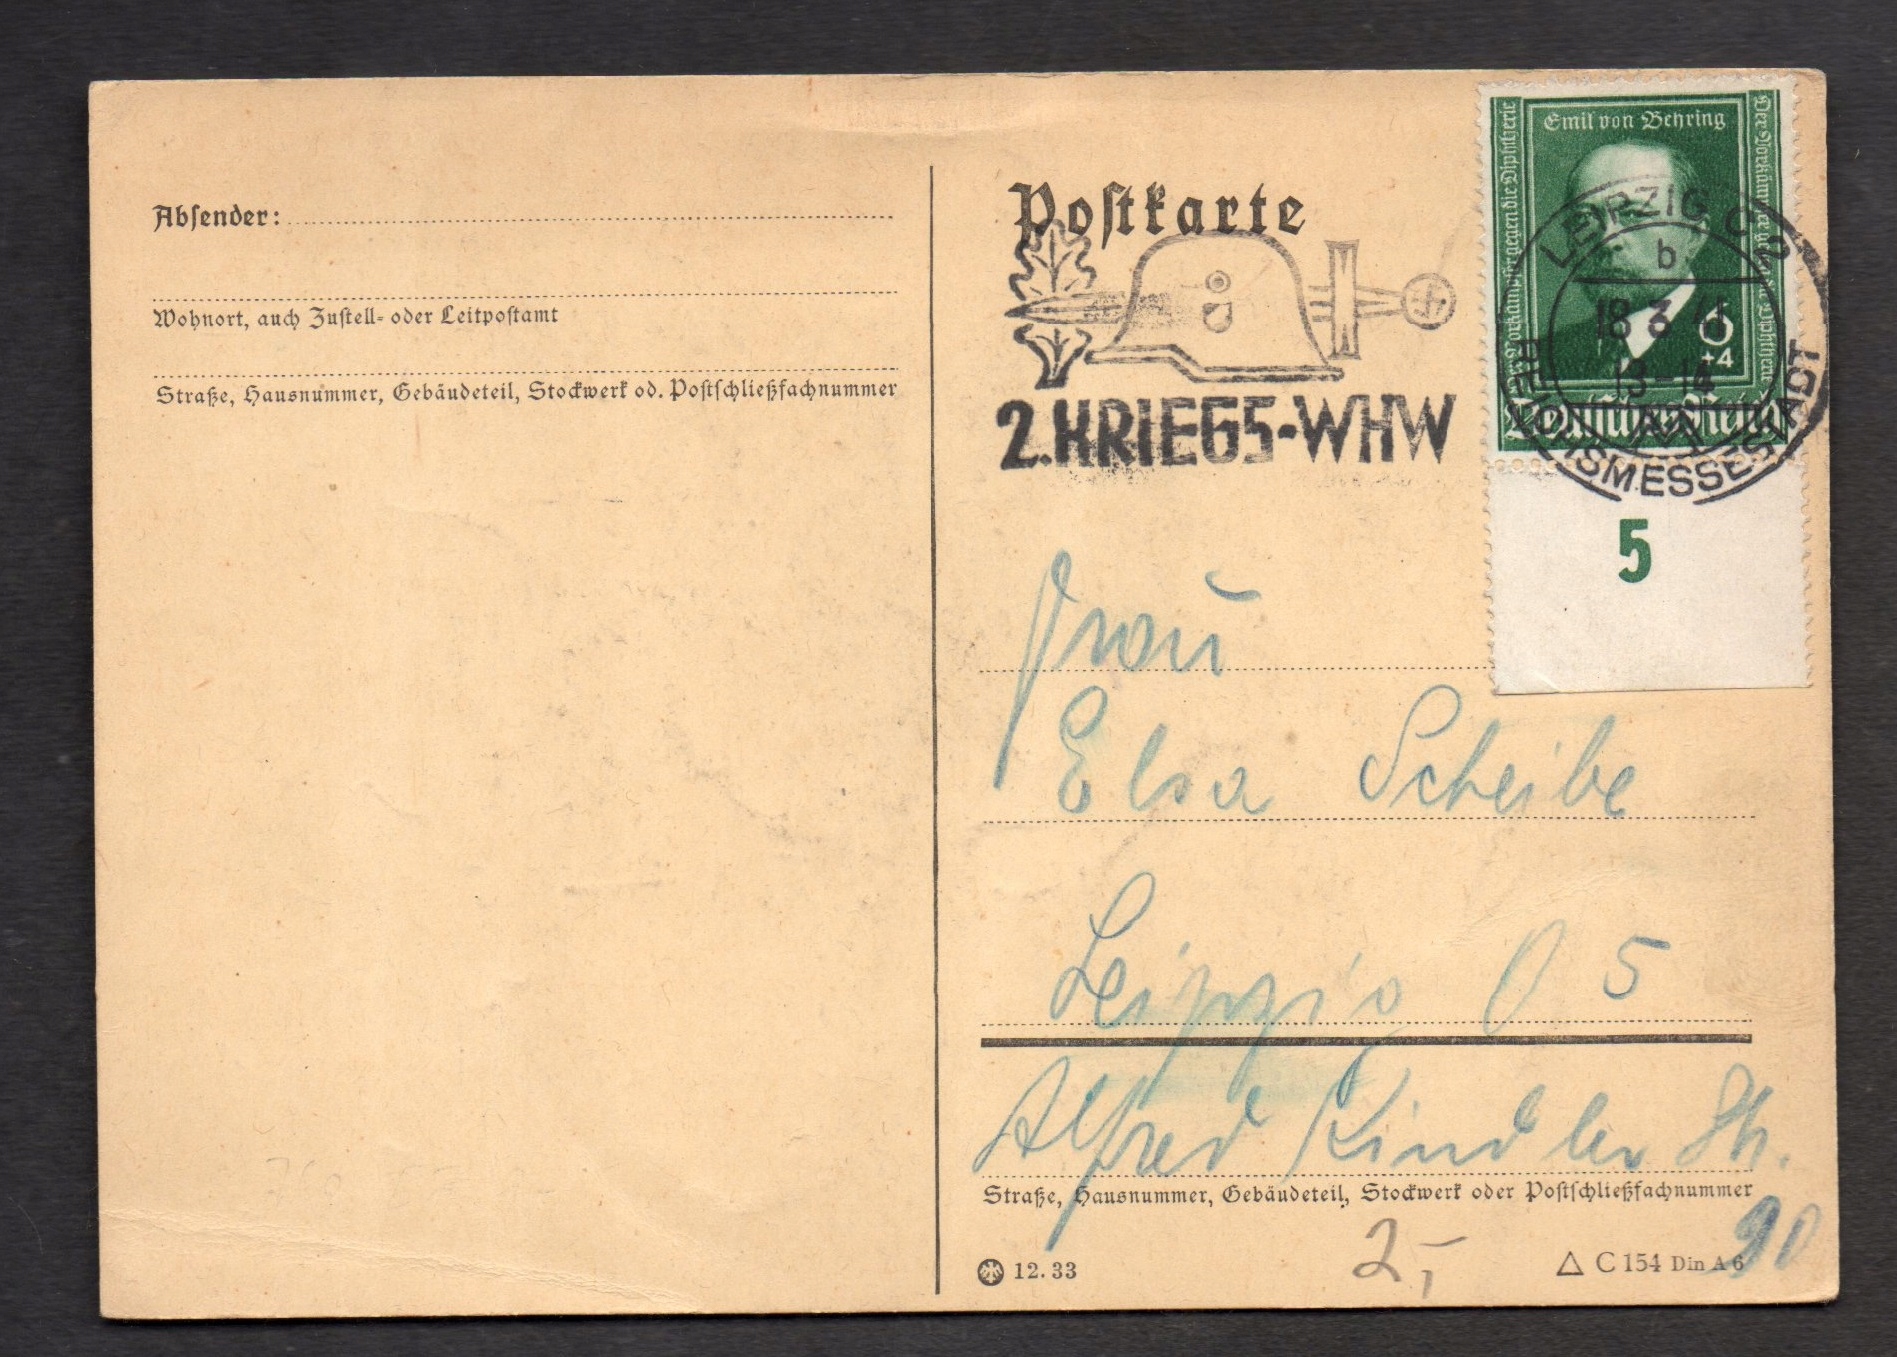 Absender:
Wohnort, auch Zustell- oder Leitpostamt
Straße, Hausnummer, Gebäudeteil, Stockwerk od. Postschließfachnummer
Postkarte
2. KRIEGS-WHW
Emil von Behring
Der Vorkämpfer gegen die Diphtherie
Der Vorkämpfer gegen die Diphtherie
6
+4
Deutsches Reich
LEIPZIG C 2
b
18 3 41
13-14
REICHSMESSESTADT
5
Frau
Elsa Scheibe
Leipzig O 5
Alfred Kindler Str.
90
Straße, Hausnummer, Gebäudeteil, Stockwerk oder Postschließfachnummer
12.33
2,-
C 154 Din A 6